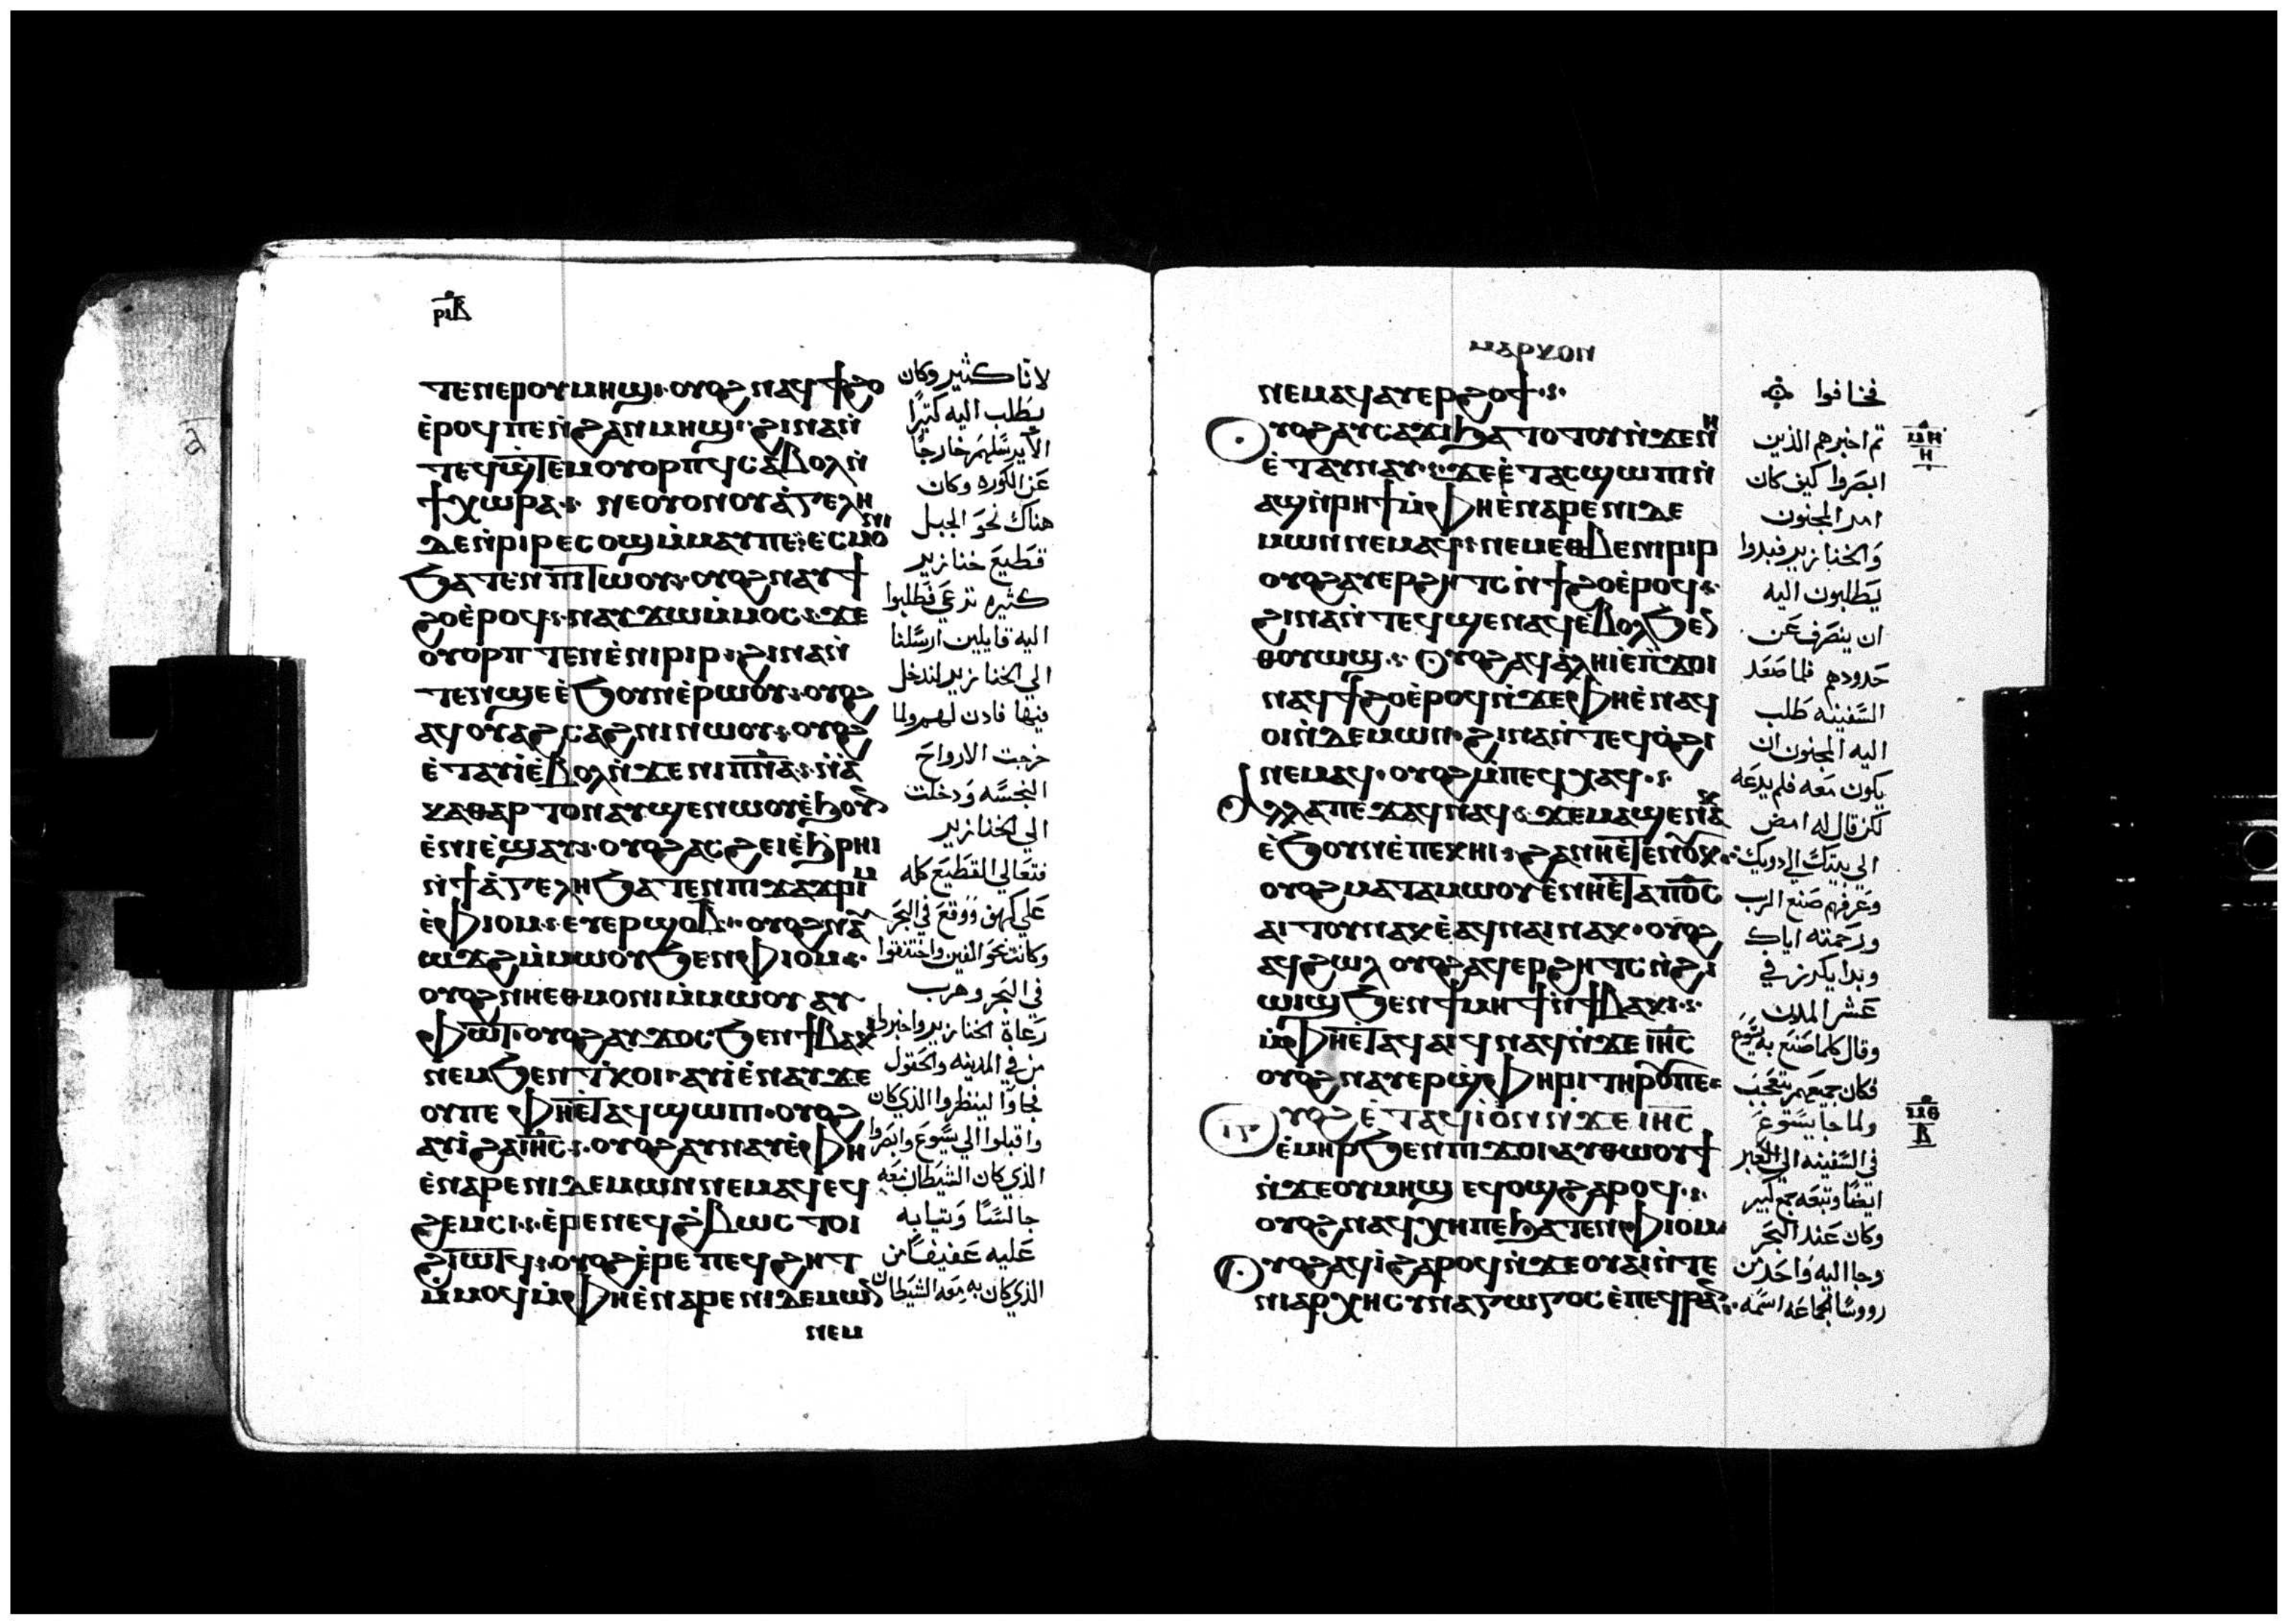 ⲣⲓⲃ
ⲧⲉⲛⲉⲣⲟⲩⲙⲏϣ· ⲟⲩⲟϩ ⲛⲁϥϯϩⲟ
ⲉ̀ⲣⲟϥⲡⲉ ⲛ̀ϩⲁⲛⲙⲏϣ· ϩⲓⲛⲁ ⲛ̀
ⲧⲉϥϣ̅ⲧⲉⲙⲟⲩⲟⲣⲡϥ ⲥⲁⲃⲟⲗ ⲛ̀
ϯⲭⲱⲣⲁ· ⲛⲉⲟⲩⲟⲛⲟⲩⲁ̀ⲅⲉⲗⲏ
ⲇⲉ ⲛ̀ⲣⲓⲣ ⲉⲥⲟϣ ⲙ̀ⲙⲁⲩⲡⲉ· ⲉⲥⲙⲟⲛⲓ
ϧⲁⲧⲉⲛ ⲡⲓⲧⲱⲟⲩ· ⲟⲩⲟϩ ⲛⲁⲩϯ
ϩⲟ ⲉ̀ⲣⲟϥ· ⲛⲁⲩϫⲱ ⲙ̀ⲙⲟⲥ· ϫⲉ
ⲟⲩⲟⲣⲡⲧⲉⲛ ⲉ̀ⲛⲓⲣⲓⲣ· ϩⲓⲛⲁ ⲛ̀
ⲧⲉⲛϣⲉ ⲉ̀ϧⲟⲩⲛ ⲉ̀ⲣⲱⲟⲩ· ⲟⲩⲟϩ
ⲁϥⲟⲩⲁϩⲥⲁϩⲛⲓ ⲛⲱⲟⲩ· ⲟⲩⲟϩ
ⲉ̀ⲧⲁⲩⲓ̀ ⲉ̀ⲃⲟⲗ ⲛ̀ϫⲉ ⲛⲓⲡ̅ⲛ̅ⲁ̅· ⲛ̀ⲁ̀
ⲕⲁⲑⲁⲣⲧⲟⲛ ⲁⲩϣⲉⲛⲱⲟⲩ ⲉ̀ϧⲟⲩⲛ
ⲉ̀ⲛⲓⲉϣⲁⲩ· ⲟⲩⲟϩ ⲁⲥϩⲉⲓ ⲉ̀ϧⲣⲏⲓ
ⲛ̀ϯⲁ̀ⲅⲉⲗⲏ ϧⲁⲧⲉⲛ ⲡⲓϫⲁϫⲣⲓⲙ
ⲉ̀ⲫⲓⲟⲙ· ⲉⲩⲉⲣϣⲟⲃ· ⲟⲩⲟϩ ⲛⲁⲩ
ⲱϫϩ ⲙ̀ⲙⲱⲟⲩ ϧⲉⲛ ⲫⲓⲟⲙ·
ⲟⲩⲟϩ ⲛⲏⲉⲑⲙⲟⲛⲓ ⲙ̀ⲙⲱⲟⲩ ⲁⲩ
ⲫⲱⲧ· ⲟⲩⲟϩ ⲁⲩϫⲟⲥ ϧⲉⲛ ϯⲃⲁⲕⲓ
ⲛⲉⲙ ϧⲉⲛ ⲧ̀ⲕⲟⲓ· ⲁⲩⲓ̀ ⲉ̀ⲛⲁⲩ ϫⲉ
ⲟⲩⲡⲉ ⲫⲏⲉ̀ⲧⲁϥϣⲱⲡⲓ· ⲟⲩⲟϩ
ⲁⲩⲓ̀ ϩⲁ ⲓⲏ̅ⲥ̅· ⲟⲩⲟϩ ⲁⲩⲛⲁⲩ ⲉ̀ⲫⲏ
ⲉ̀ⲛⲁⲣⲉ ⲛⲓⲇⲉⲙⲱⲛ ⲛⲉⲙⲁϥ ⲉϥ
ϩⲉⲙⲥⲓ· ⲉ̀ⲣⲉ ⲛⲉϥϩ̀ⲃⲱⲥ ⲧⲟⲓ
ϩⲓⲱⲧϥ· ⲟⲩⲟϩ ⲉ̀ⲣⲉ ⲡⲉϥϩⲏⲧ
ⲙ̀ⲙⲟϥ ⲙ̀ⲫⲏⲉ̀ⲛⲁⲣⲉ ⲛⲓⲇⲉⲙⲱⲛ
ⲛⲉⲙ
لاننا كثير وكان
يطلب اليه كثيرًا
الا يرسلهم خارجًا
عن الكوره وكان
هناك نحو الجبل
قطيع خنازير
كثيره ترعي فطلبوا
اليه قايلين ارسلنا
الي الخنازير لندخل
فيها فاذن لهم ولما
خرجت الارواح
النجسه ودخلت
الي الخنازير
فتعالي القطيع كله
علي كهف ووقع في البحر
وكانت نحو الفين واختنقوا
في البحر وهرب
رعاة الخنازير واخبروا
من في المدينه والحقول
فجاوا لينظروا الذي كان
واقبلوا الي يسوع وابصروا
الذي كان الشيطان معه
جالسًا وثيابه
عليه عفيفًا من
الذي كان به معه الشيطان
ⲙⲁⲣⲕⲟⲛ
ⲛⲉⲙⲁϥ ⲁⲩⲉⲣϩⲟϯ·
ⲟⲩⲟϩ ⲁⲩⲥⲁϫⲓ ϧⲁⲧⲟⲧⲟⲩ ⲛ̀ϫⲉ ⲛⲏ
ⲉ̀ⲧⲁⲩⲛⲁⲩ· ϫⲉ ⲉ̀ⲧⲁⲥϣⲱⲡⲓ ⲛ̀
ⲁϣ ⲛ̀ⲣⲏϯ ⲙ̀ⲫⲏⲉ̀ⲛⲁⲣⲉ ⲛⲓⲇⲉ
ⲙⲱⲛ ⲛⲉⲙⲁϥ· ⲛⲉⲙ ⲉⲑⲃⲉ ⲛⲓⲣⲓⲣ
ⲟⲩⲟϩ ⲁⲩⲉⲣϩⲏⲧⲥ ⲛ̀ϯϩⲟ ⲉ̀ⲣⲟϥ·
ϩⲓⲛⲁ ⲛ̀ⲧⲉϥϣⲉⲛⲁϥ ⲉ̀ⲃⲟⲗ ϧⲉⲛ
ⲑⲟⲩⲱϣ· ⲟⲩⲟϩ ⲁϥⲁ̀ⲗⲏⲓ ⲉ̀ⲡ̀ϫⲟⲓ
ⲛⲁϥϯϩⲟ ⲉ̀ⲣⲟϥ ⲛ̀ϫⲉ ⲫⲏⲉ̀ⲛⲁϥ
ⲟⲓ ⲛ̀ⲇⲉⲙⲱⲛ· ϩⲓⲛⲁ ⲛ̀ⲧⲉϥⲟ̀ϩⲓ
ⲛⲉⲙⲁϥ· ⲟⲩⲟϩ ⲙ̀ⲡⲉϥⲭⲁϥ·
ⲁⲗⲗⲁ ⲡⲉϫⲁϥ ⲛⲁϥ· ϫⲉ ⲙⲁϣⲉⲛⲁⲕ
ⲉ̀ϧⲟⲩⲛ ⲉ̀ⲡⲉⲕⲏⲓ· ϩⲁ ⲛⲏⲉ̀ⲧⲉⲛⲟⲩⲕ·
ⲟⲩⲟϩ ⲙⲁⲧⲁⲙⲱⲟⲩ ⲉ̀ⲛⲏⲉ̀ⲧⲁ ⲡ⳪
ⲁⲓⲧⲟⲩ ⲛⲁⲕ ⲉ̀ⲁϥⲛⲁⲓ ⲛⲁⲕ· ⲟⲩⲟϩ
ⲁϥϩⲱⲗ ⲟⲩⲟϩ ⲁϥⲉⲣϩⲏⲧⲥ ⲛ̀ϩⲓ
ⲱⲓϣ ϧⲉⲛ ϯⲙⲏϯ ⲛ̀ϯⲃⲁⲕⲓ·
ⲙ̀ⲫⲏⲉ̀ⲧⲁϥⲁⲓϥ ⲛⲁϥ ⲛ̀ϫⲉ ⲓⲏ̅ⲥ̅
ⲟⲩⲟϩ ⲛⲁⲩⲉⲣϣ̀ⲫⲏⲣⲓ ⲧⲏⲣⲟⲩⲡⲉ·
ⲟⲩⲟϩ ⲉ̀ⲧⲁϥⲓ̀ ⲟⲛ ⲛ̀ϫⲉ ⲓⲏ̅ⲥ̅
ⲉ̀ⲙⲏⲣ ϧⲉⲛ ⲡⲓϫⲟⲓ ⲁⲩⲑⲱⲟⲩϯ
ⲛ̀ϫⲉ ⲟⲩⲙⲏϣ ⲉϥⲟϣ ϩⲁⲣⲟϥ·
ⲟⲩⲟϩ ⲛⲁϥⲭⲏⲡⲉ ϧⲁⲧⲉⲛ ⲫⲓⲟⲙ
ⲟⲩⲟϩ ⲁϥⲓ̀ ϩⲁⲣⲟϥ ⲛ̀ϫⲉ ⲟⲩⲁⲓ ⲛ̀ⲧⲉ
ⲛⲓⲁⲣⲭⲏⲥⲩⲛⲁⲅⲱⲅⲟⲥ ⲉ̀ⲡⲉϥⲣⲁⲛ·
فخافوا
ثم اخبرهم الذين
ابصروا كيف كان
امر المجنون
والخنازير فبدوا
يطلبون اليه
ان ينصرف عن
حدودهم فلما صعد
السفينه طلب
اليه المجنون ان
يكون معه فلم يدعه
لكن قال له امض
الي بيتك الي ذويك
وعرفهم صنع الرب
ورحمته اياك
وبدا يكرز في
عشر المدن
وقال كلما صنع به يسوع
فكان جميعهم يتعجب
ولما جا يسوع
في السفينه الي العبر
ايضًا وتبعه جمع كبير
وكان عند البحر
وجا اليه واحد من
رووسا الجماعه اسمه
ⲙⲏ
ⲏ
ⲙⲑ
ⲃ